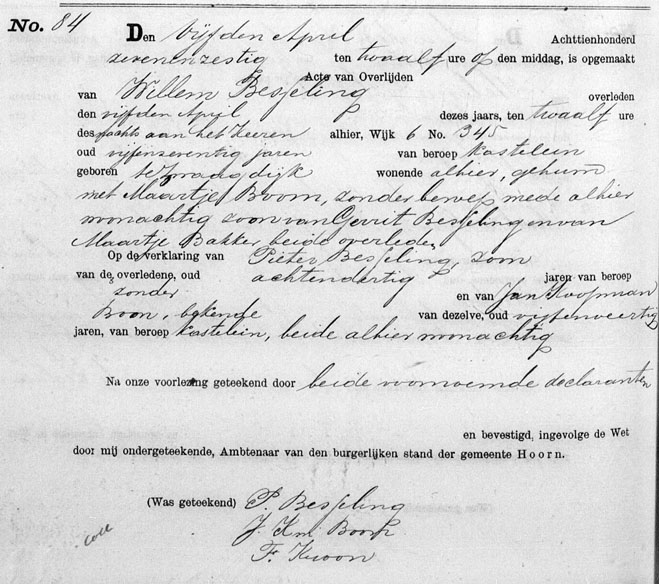 No. 84
Den vijfden April Achttienhonderd
zevenenzestig ten twaalf ure op den middag, is opgemaakt
Acte van Overlijden
van Willem Besseling overleden
den vijfden April dezes jaars, ten twaalf ure
des nachts aan het Keeren alhier, Wijk 6 No. 345
oud vijfenzeventig jaren van beroep kastelein
geboren te Zwaagdijk wonende alhier, gehuwd
met Maartje Boom, zonder beroep mede alhier
woonachtig zoon van Gerrit Besseling en van
Maartje Bakker, beide overleden
Op de verklaring van Pieter Besseling, zoon
van de overledene, oud achtendertig jaren van beroep
zonder en van Jan Koopman
Boon, bekende van dezelve, oud vijfenveertig
jaren, van beroep kastelein, beide alhier woonachtig
Na onze voorlezing geteekend door beide voornoemde declaranten
en bevestigd, ingevolge de Wet
door mij ondergeteekende, Ambtenaar van den burgerlijken stand der gemeente Hoorn.
(Was geteekend) P. Besseling
J. Km Boon
F. Kroon